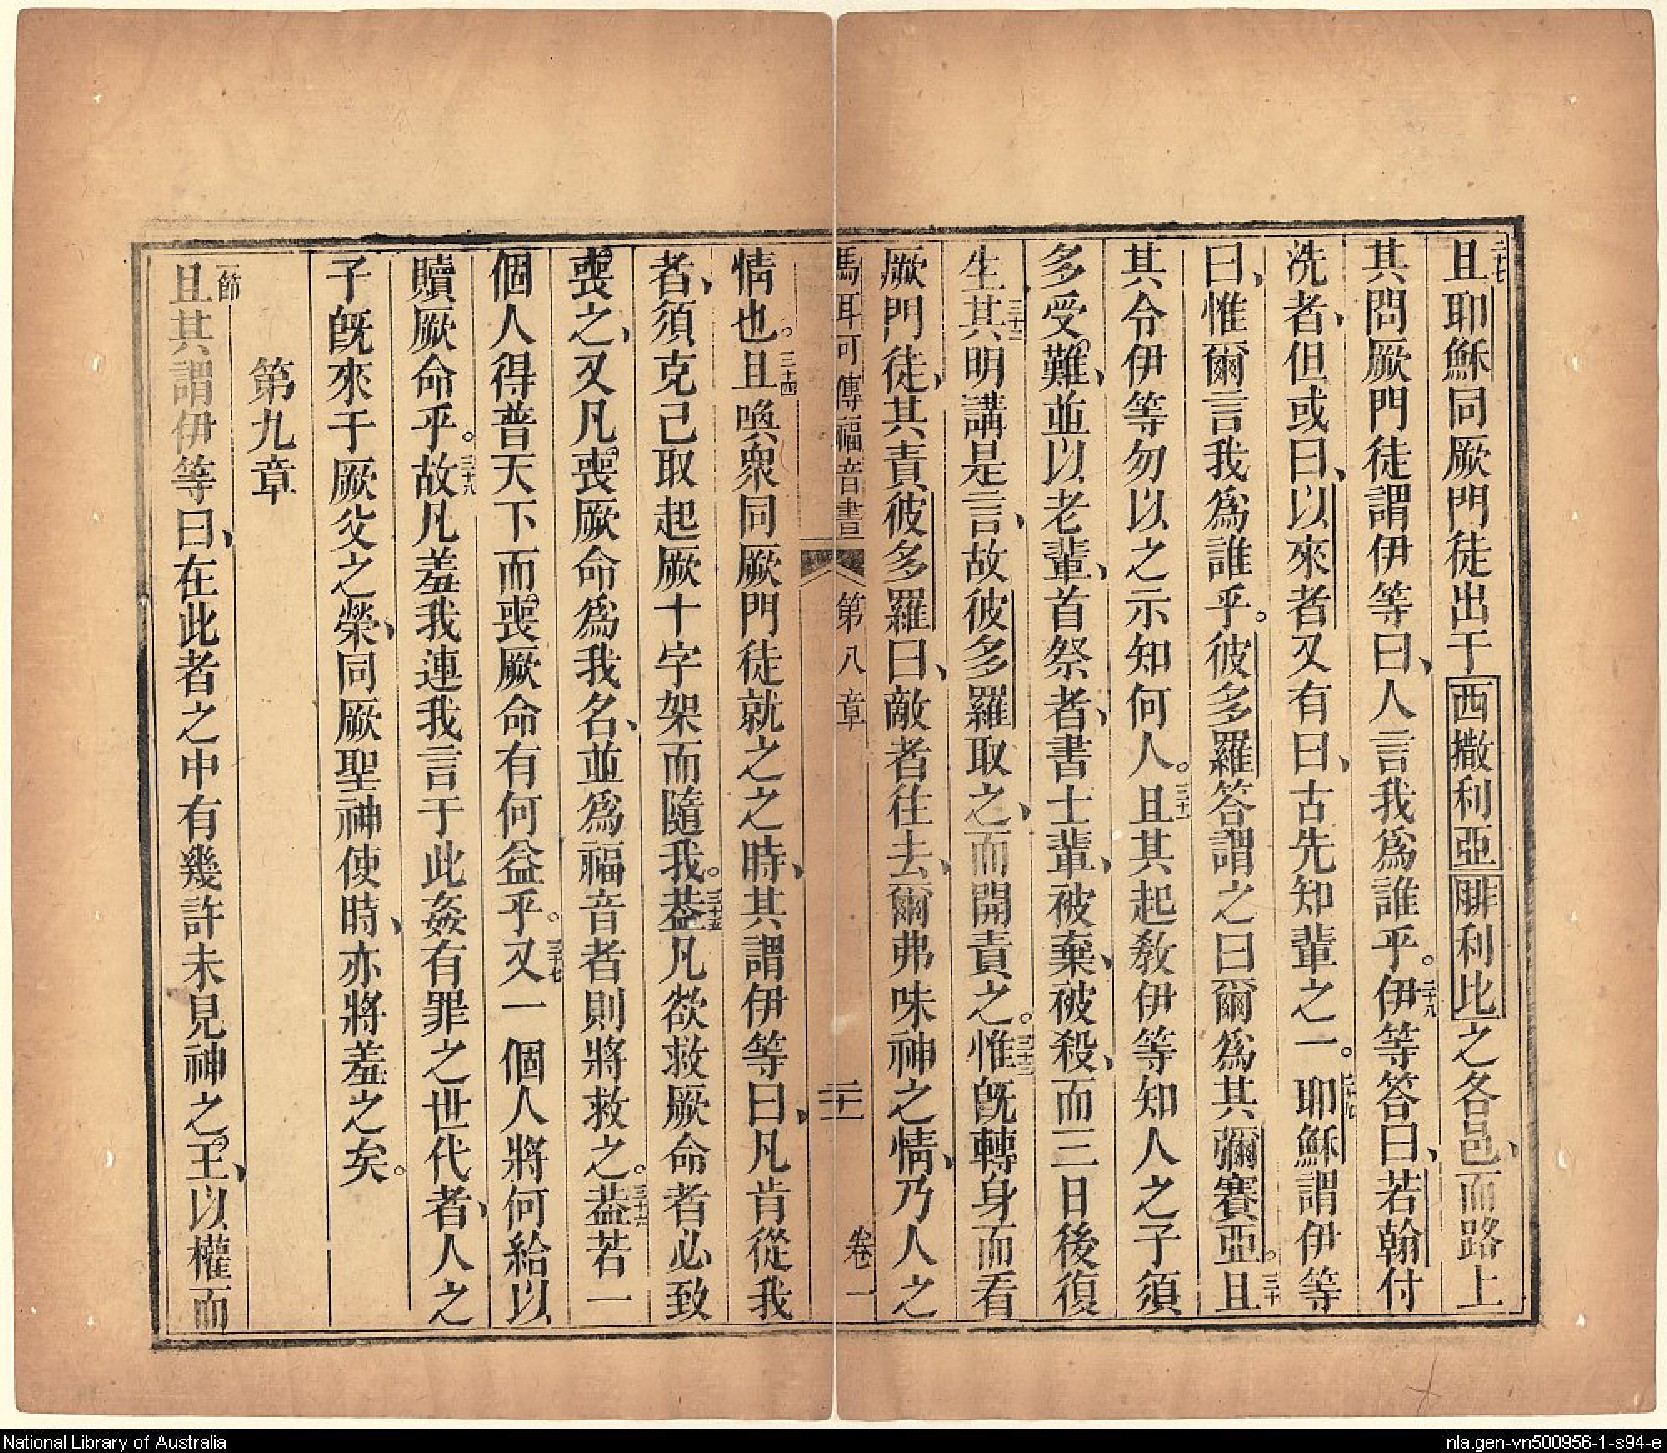 二十七且耶穌同厥門徒出于西撒利亞腓利比之各邑、而路上
其問厥門徒謂伊等曰、人言我爲誰乎。二十八伊等答曰、若翰付
洗者、但或曰、以來者又有曰、古先知輩之一。二十九耶穌謂伊等
曰、惟爾言我爲誰乎。彼多羅答謂之曰爾爲其彌賽亞。三十且
其令伊等勿以之示知何人。三十一且其起教伊等知人之子須
多受難、並以老輩、首祭者、書士輩、被棄、被殺、而三日後復
生三十二其明講是言、故彼多羅取之、而開責之。三十三惟旣轉身而看
厥門徒、其責彼多羅曰、敵者往去、爾弗味神之情、乃人之
馬耳可傳福音書 第八章 二十一 卷一
情也。三十四且喚衆同厥門徒就之之時、其謂伊等曰、凡肯從我
者、須克己取起厥十字架而隨我。三十五葢凡欲救厥命者必致
喪之、又凡喪厥命爲我名、並爲福音者則將救之。三十六葢若一
個人得普天下而喪厥命有何益乎。三十七又一個人將何給以
贖厥命乎。三十八故凡羞我連我言于此姦有罪之世代者、人之
子旣來于厥父之榮、同厥聖神使時、亦將羞之矣。
第九章
一節且其謂伊等曰、在此者之中有幾許未見神之王、以權而
National Library of Australia
nla.gen-vn500956-1-s94-e